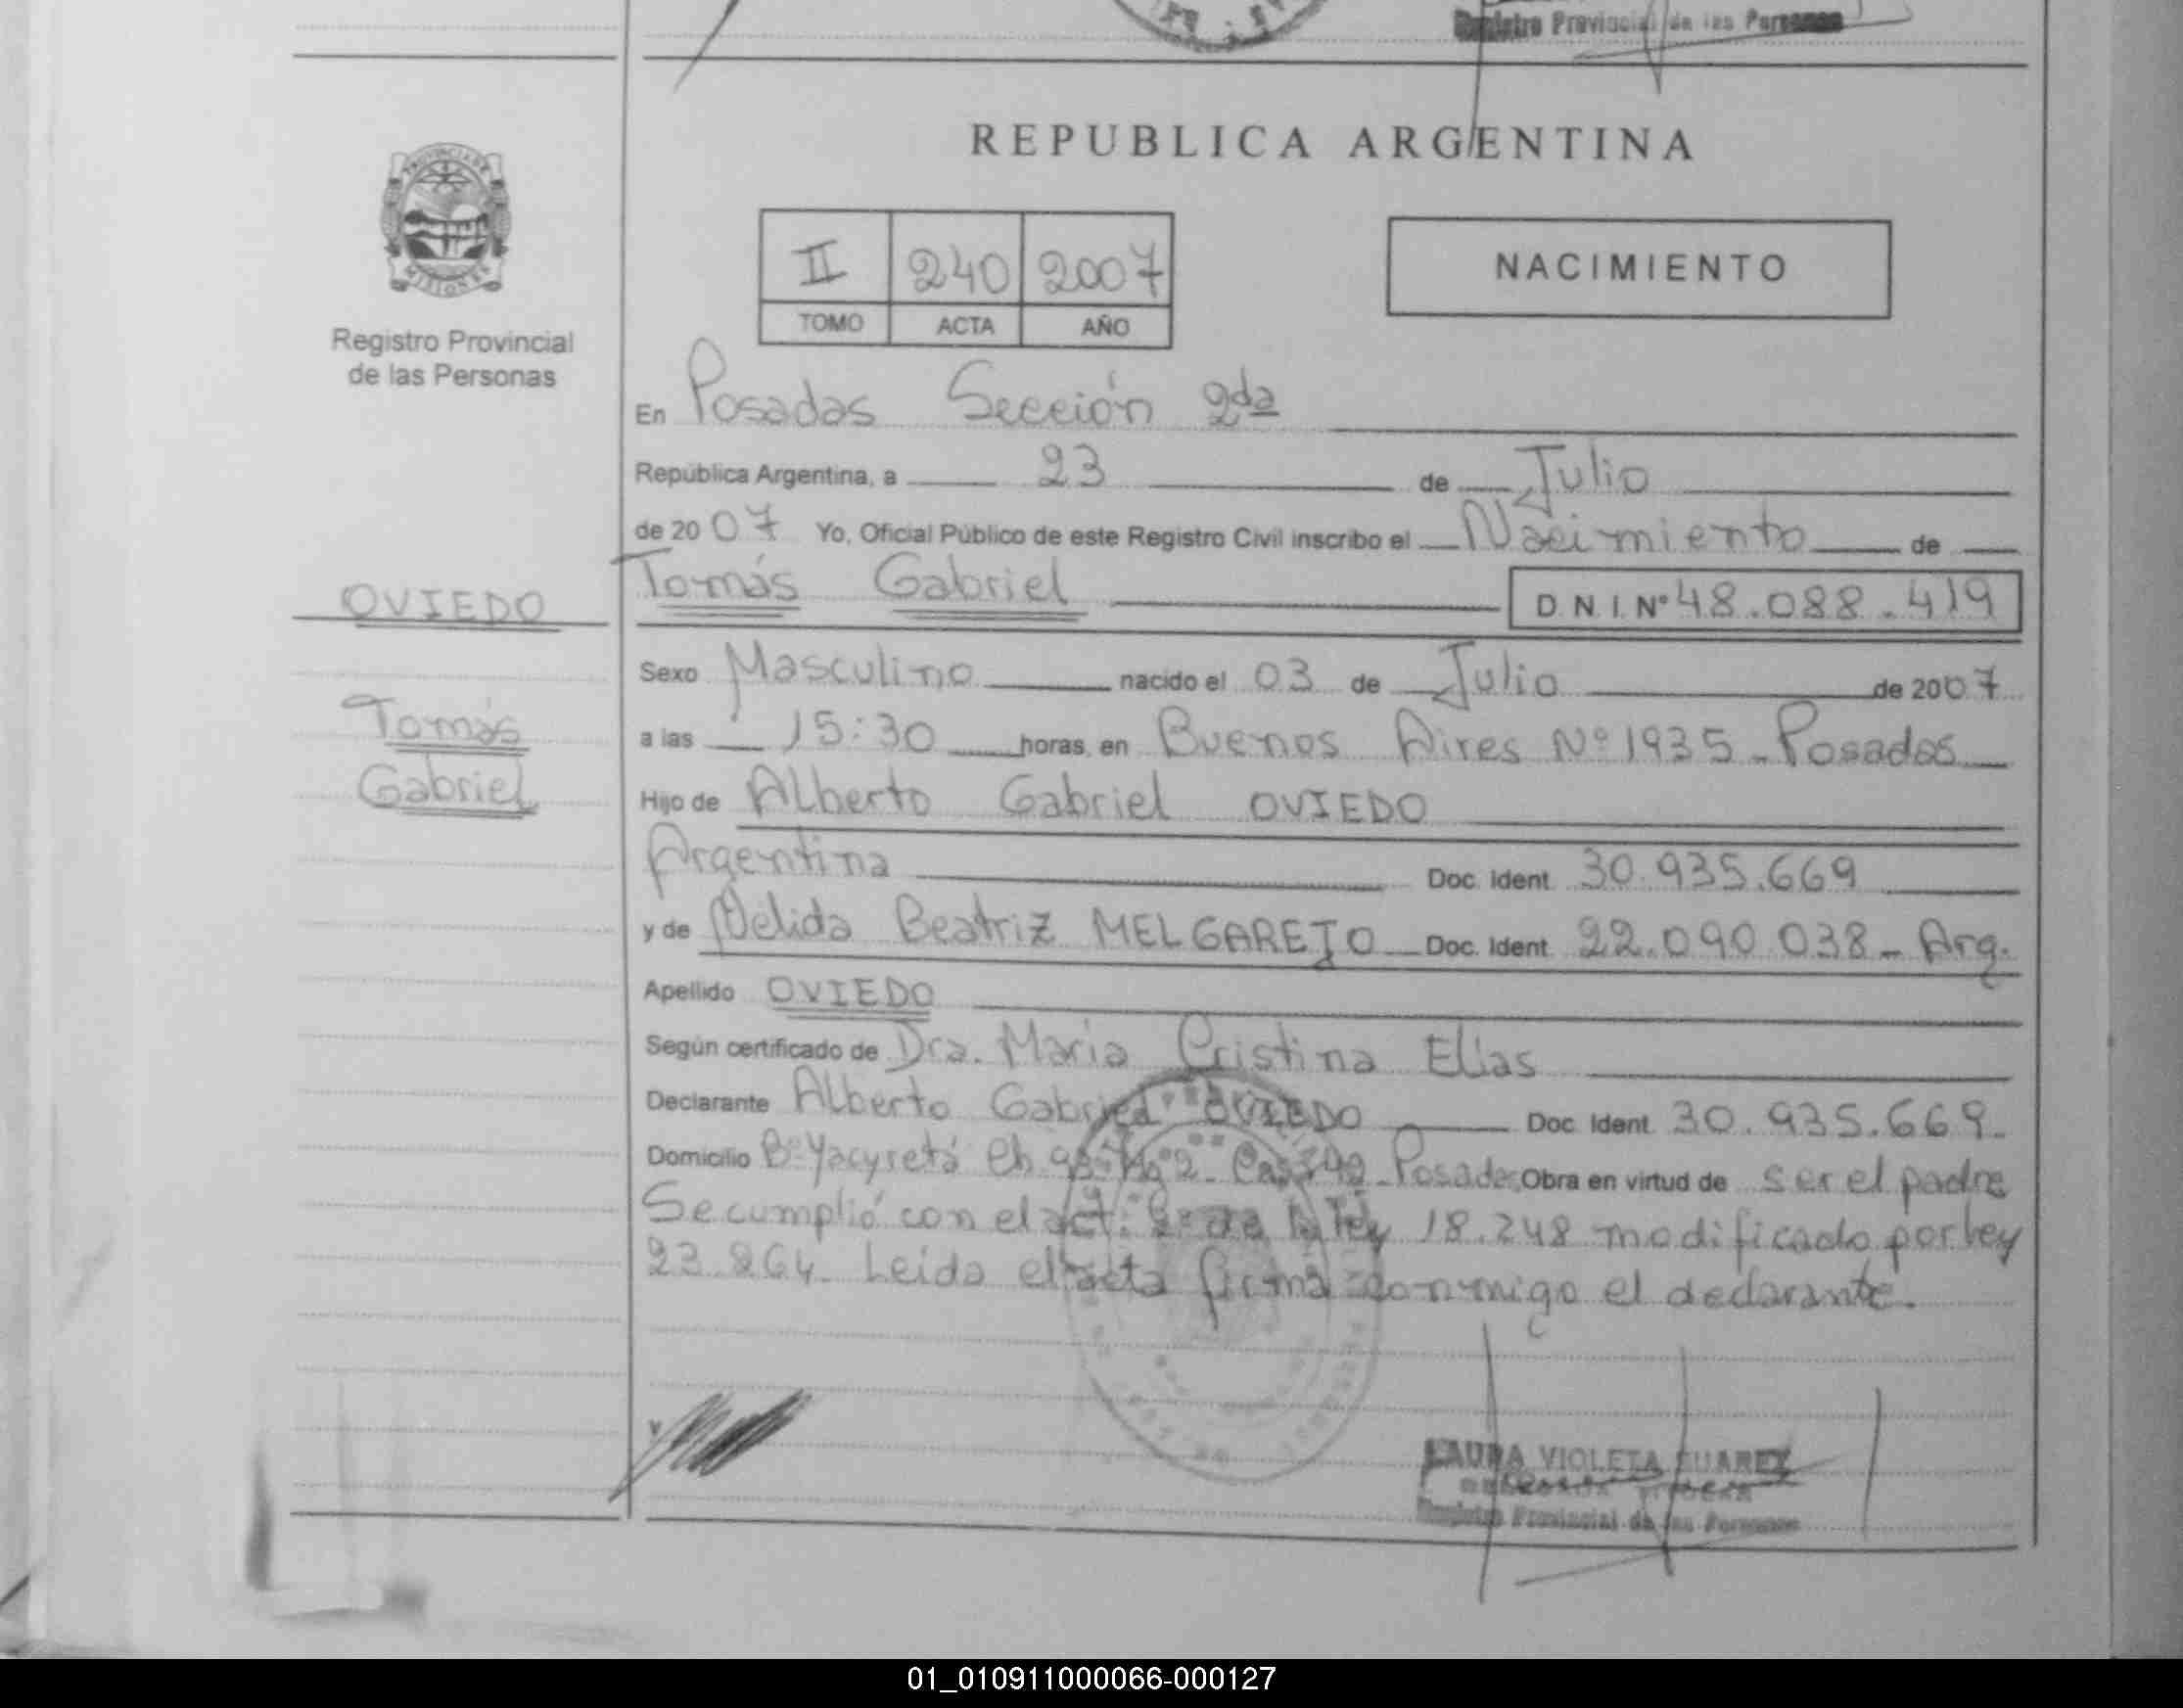 Registro Provincial de las Personas
REPUBLICA ARGENTINA
PROVINCIA DE
MISIONES
Registro Provincial
de las Personas
II 240 2007
TOMO ACTA AÑO
NACIMIENTO
En Posadas Sección 2da
República Argentina, a 23 de Julio
de 2007 Yo, Oficial Público de este Registro Civil inscribo el Nacimiento de
OVIEDO
Tomás Gabriel D.N.I. Nº 48.088.419
Sexo Masculino nacido el 03 de Julio de 2007
Tomás
a las 15:30 horas, en Buenos Aires Nº 1935 - Posadas
Gabriel
Hijo de Alberto Gabriel OVIEDO
Argentina Doc. Ident. 30.935.669
y de Nelida Beatriz MELGAREJO Doc. Ident. 22.090.038 - Arg.
Apellido OVIEDO
Según certificado de Dra. Maria Cristina Elias
Declarante Alberto Gabriel OVIEDO Doc. Ident. 30.935.669.
Domicilio Bº Yacyretá Ch. Posadas Obra en virtud de ser el padre
Se cumplió con el art. de la ley 18.248 modificado por ley
23.264. Leída el acta firma conmigo el declarante.
LAURA VIOLETA SUAREZ
Registro Provincial de las Personas
01_010911000066-000127